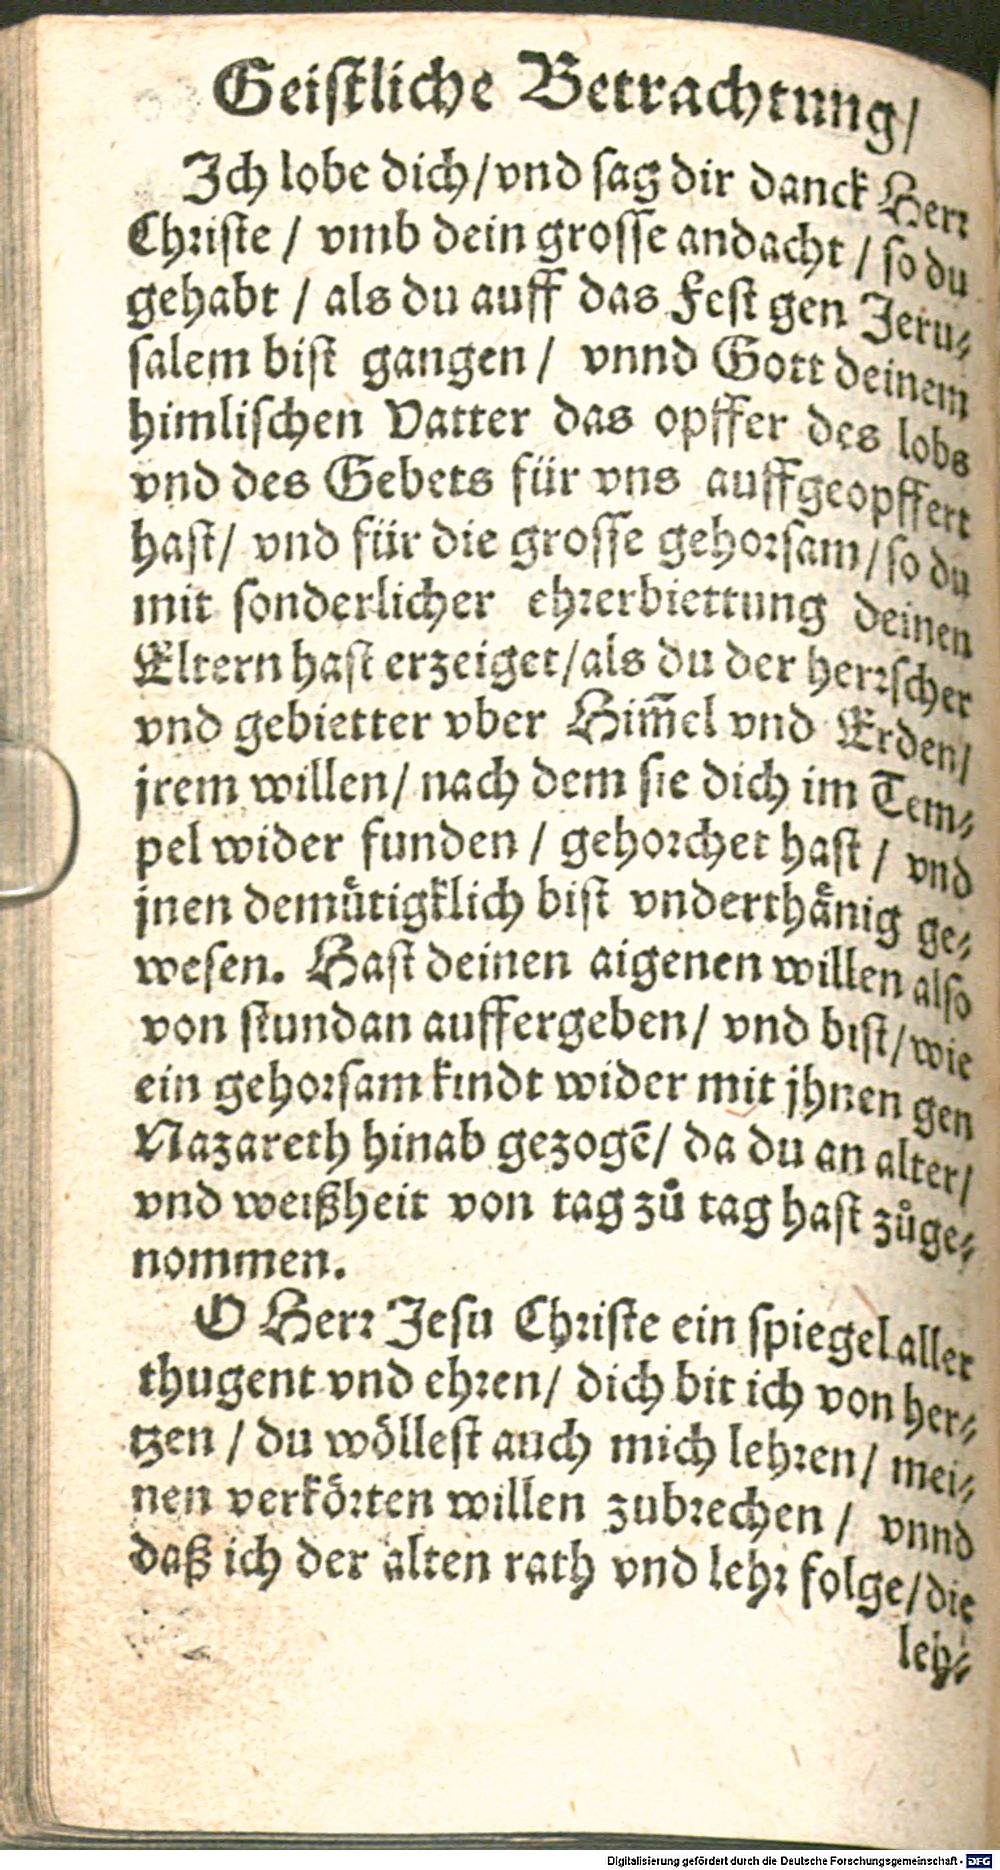 Geistliche Betrachtung/
Ich lobe dich/vnd sag dir danck Herr
Christe / vmb dein grosse andacht / so du
gehabt / als du auff das Fest gen Jeru⸗
salem bist gangen / vnnd Gott deinem
himlischen Vatter das opffer des lobs
vnd des Gebets für vns auffgeopffert
hast/ vnd für die grosse gehorsam/so du
mit sonderlicher ehrerbiettung deinen
Eltern hast erzeiget/als du der herrscher
vnd gebietter vber Him̃el vnd Erden/
jrem willen/ nach dem sie dich im Tem⸗
pel wider funden / gehorchet hast / vnd
jnen demuͤtigklich bist vnderthaͤnig ge⸗
wesen. Hast deinen aigenen willen also
von stundan auffergeben/ vnd bist/wie
ein gehorsam kindt wider mit jhnen gen
Nazareth hinab gezogẽ/ da du an alter/
vnd weißheit von tag zuͦ tag hast zuͦge⸗
nommen.
O Herr Jesu Christe ein spiegel aller
thugent vnd ehren/ dich bit ich von her⸗
tzen / du woͤllest auch mich lehren/ mei⸗
nen verkoͤrten willen zubrechen / vnnd
daß ich der alten rath vnd lehr folge/die
leh⸗
Digitalisierung gefördert durch die Deutsche Forschungsgemeinschaft - DFG